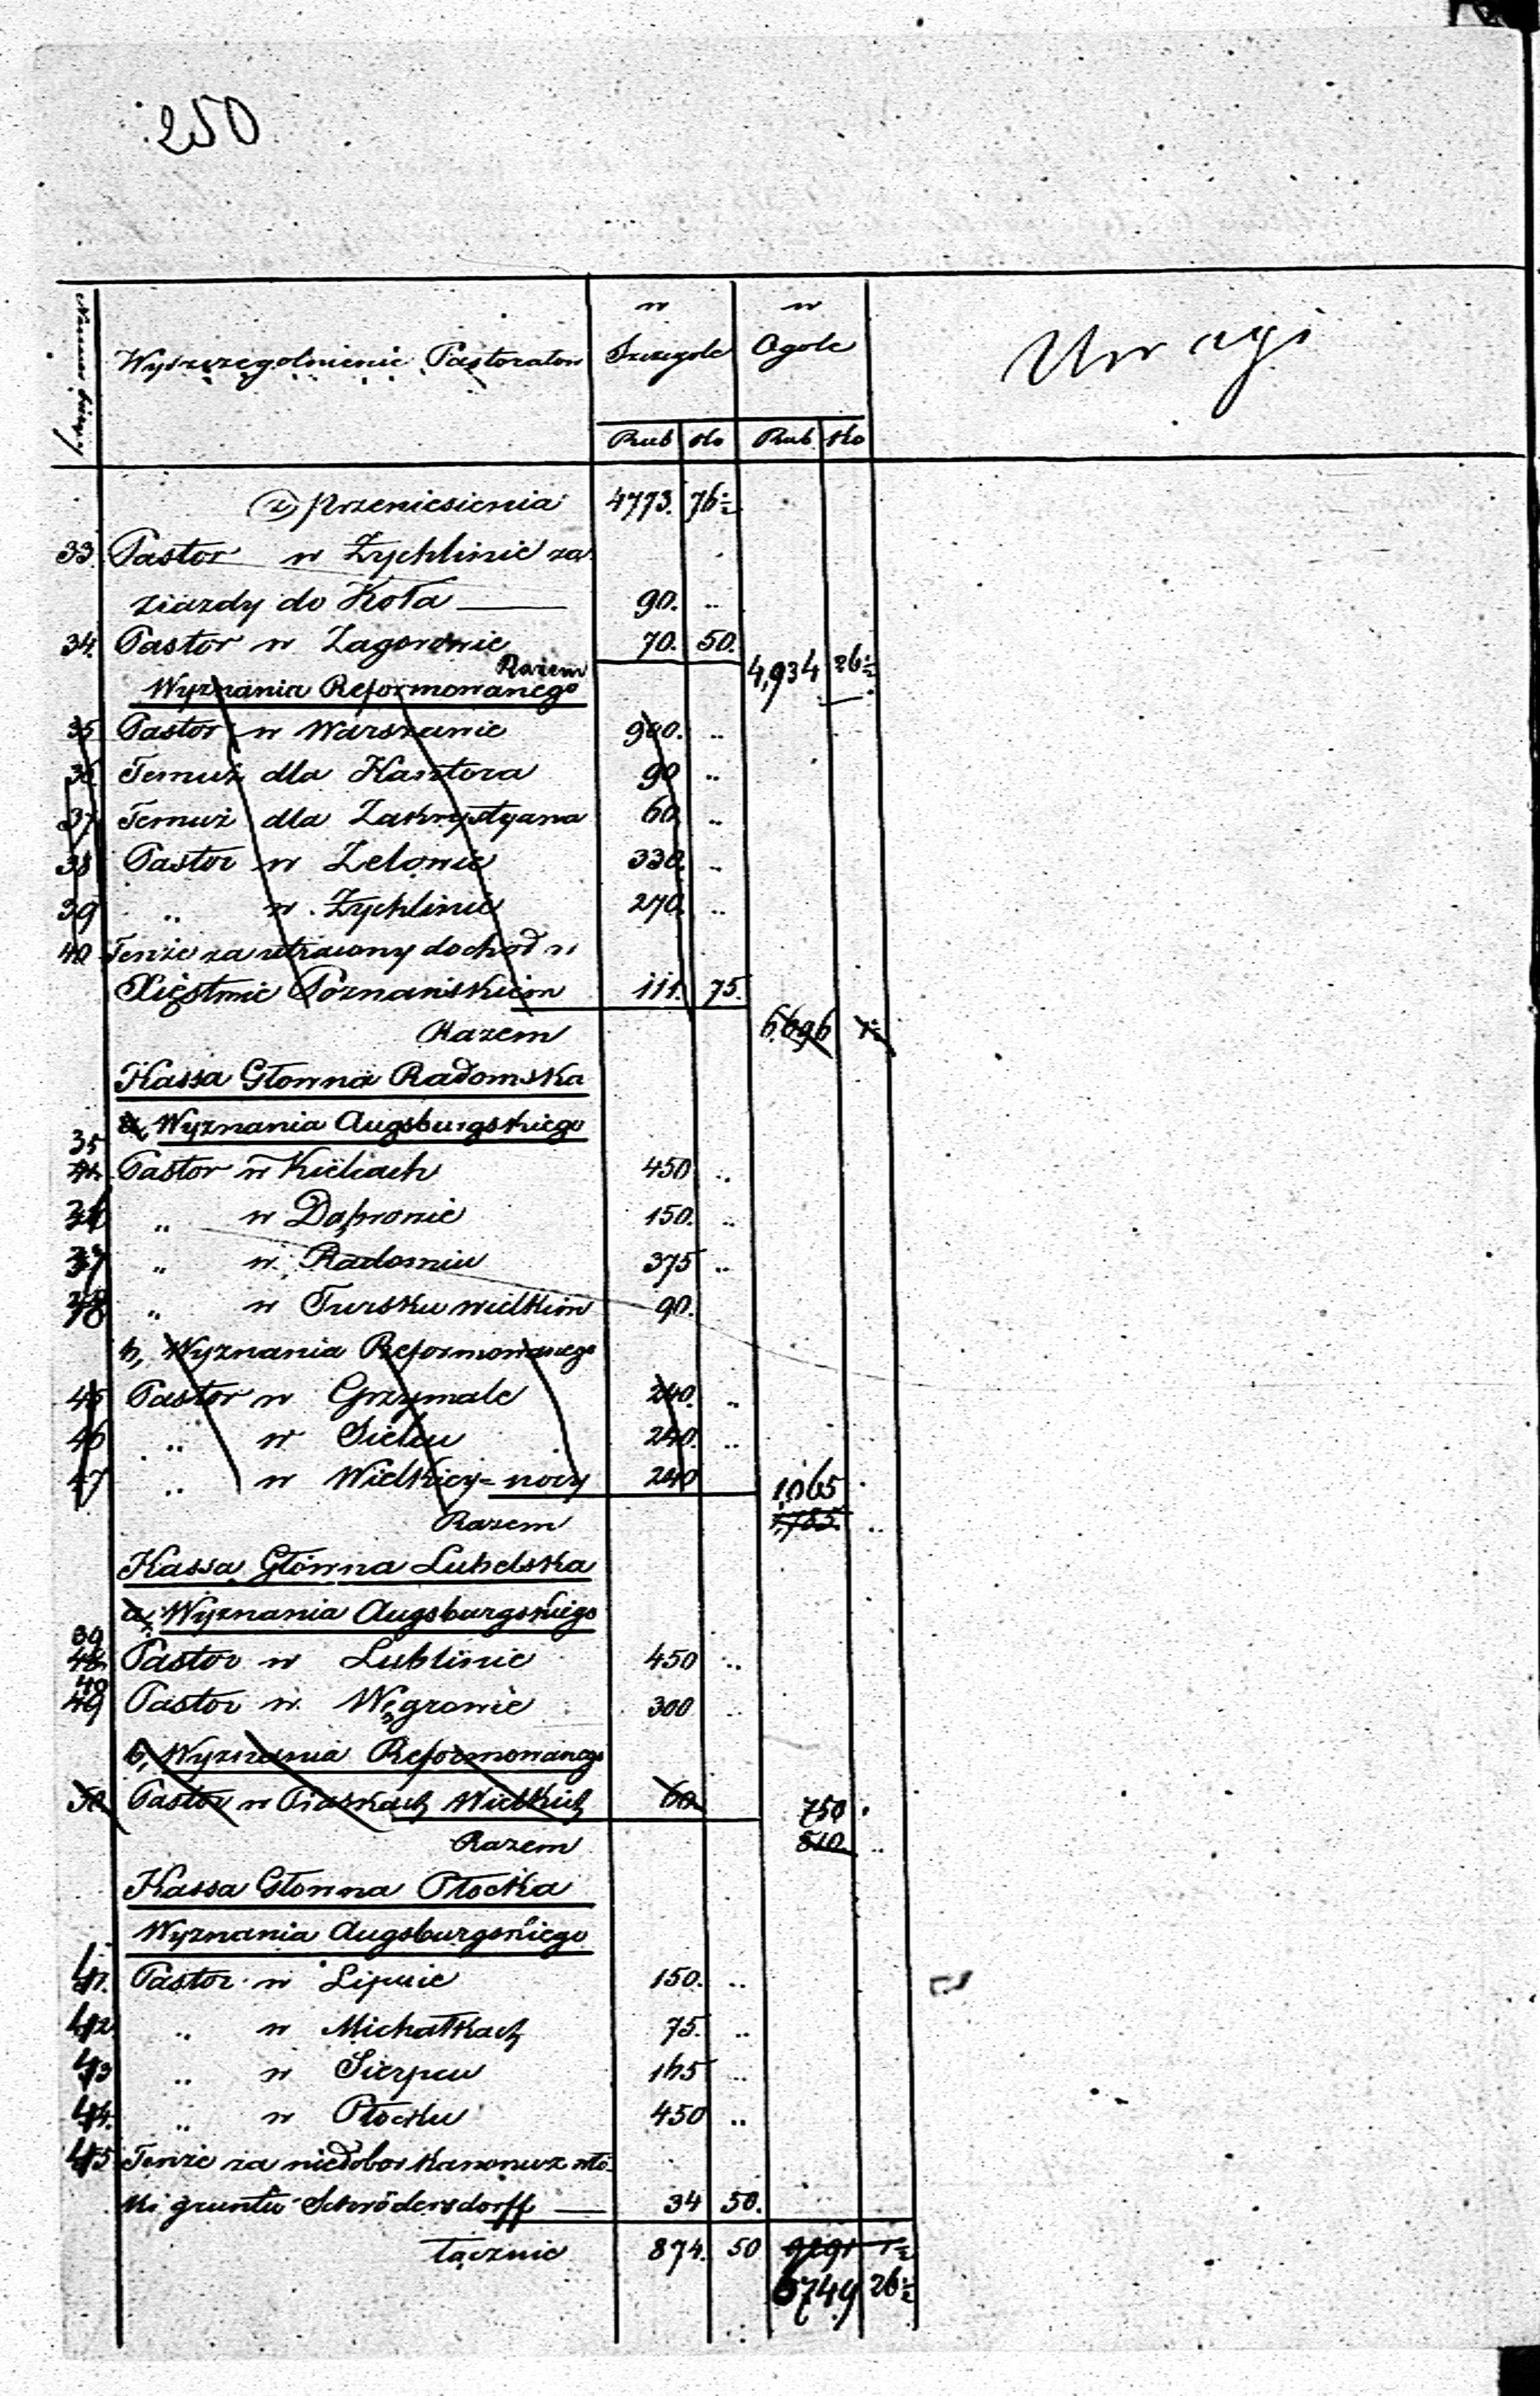 250
Numer bieżący
Wyszczegolnienie Pastoratow
w Szczegole
w Ogole
Uwagi
Rub ko Rub ko
z przeniesienia 4773. 76½
33. Pastor w Żychlinie za
ziazdy do Koła — 90. ..
34. Pastor w Zagorowie 70. 50.
Razem 4,934 26½
Wyznania Reformowanego
35 Pastor w Warszawie 900. ..
36 Temuż dla Kantora 90 ..
37 Temuż dla Zakrystyana 60 ..
38 Pastor w Zelowie 330. ..
39 .. w Żychlinie 270. ..
40 Tenże za utracony dochod w
Xięstwie Poznańskiem 111. 75.
Razem 6.696 1½
Kassa Głowna Radomska
a, Wyznania Augsburgskiego
35 41. Pastor w Kielcach 450 ..
36 .. w Dąbrowie 150. ..
37 .. w Radomiu 375 ..
38 .. w Tursku wielkim 90.
b, Wyznania Reformowanego
45 Pastor w Grzymale 240. ..
46 .. w Sielcu 240. ..
47 .. w Wielkiej-nocy 240
1,065
Razem 1,785. ..
Kassa Główna Lubelska
a, Wyznania Augsburgskiego
39 48. Pastor w Lublinie 450 ..
40 49 Pastor w Węgrowie 300 ..
b, Wyznania Reformowanego
50 Pastor w Piaskach Wielkich 60
750
Razem 810. ..
Kassa Głowna Płocka
Wyznania Augsburgskiego
41. Pastor w Lipnie 150. ..
42. .. w Michałkach 75. ..
43 .. w Sierpcu 165 ..
44. .. w Płocku 450 ..
45 Tenże za niedobor kanonu z wło-
ki gruntu Schrödersdorff — 34 50.
Łącznie 874. 50 9291 1½
6749 26½